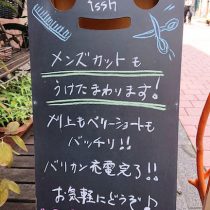 issh
メンズカットも
うけたまわります。
刈上もベリーショートも
バッチリ!!
バリカン充電完了!!
お気軽にどうぞ♪